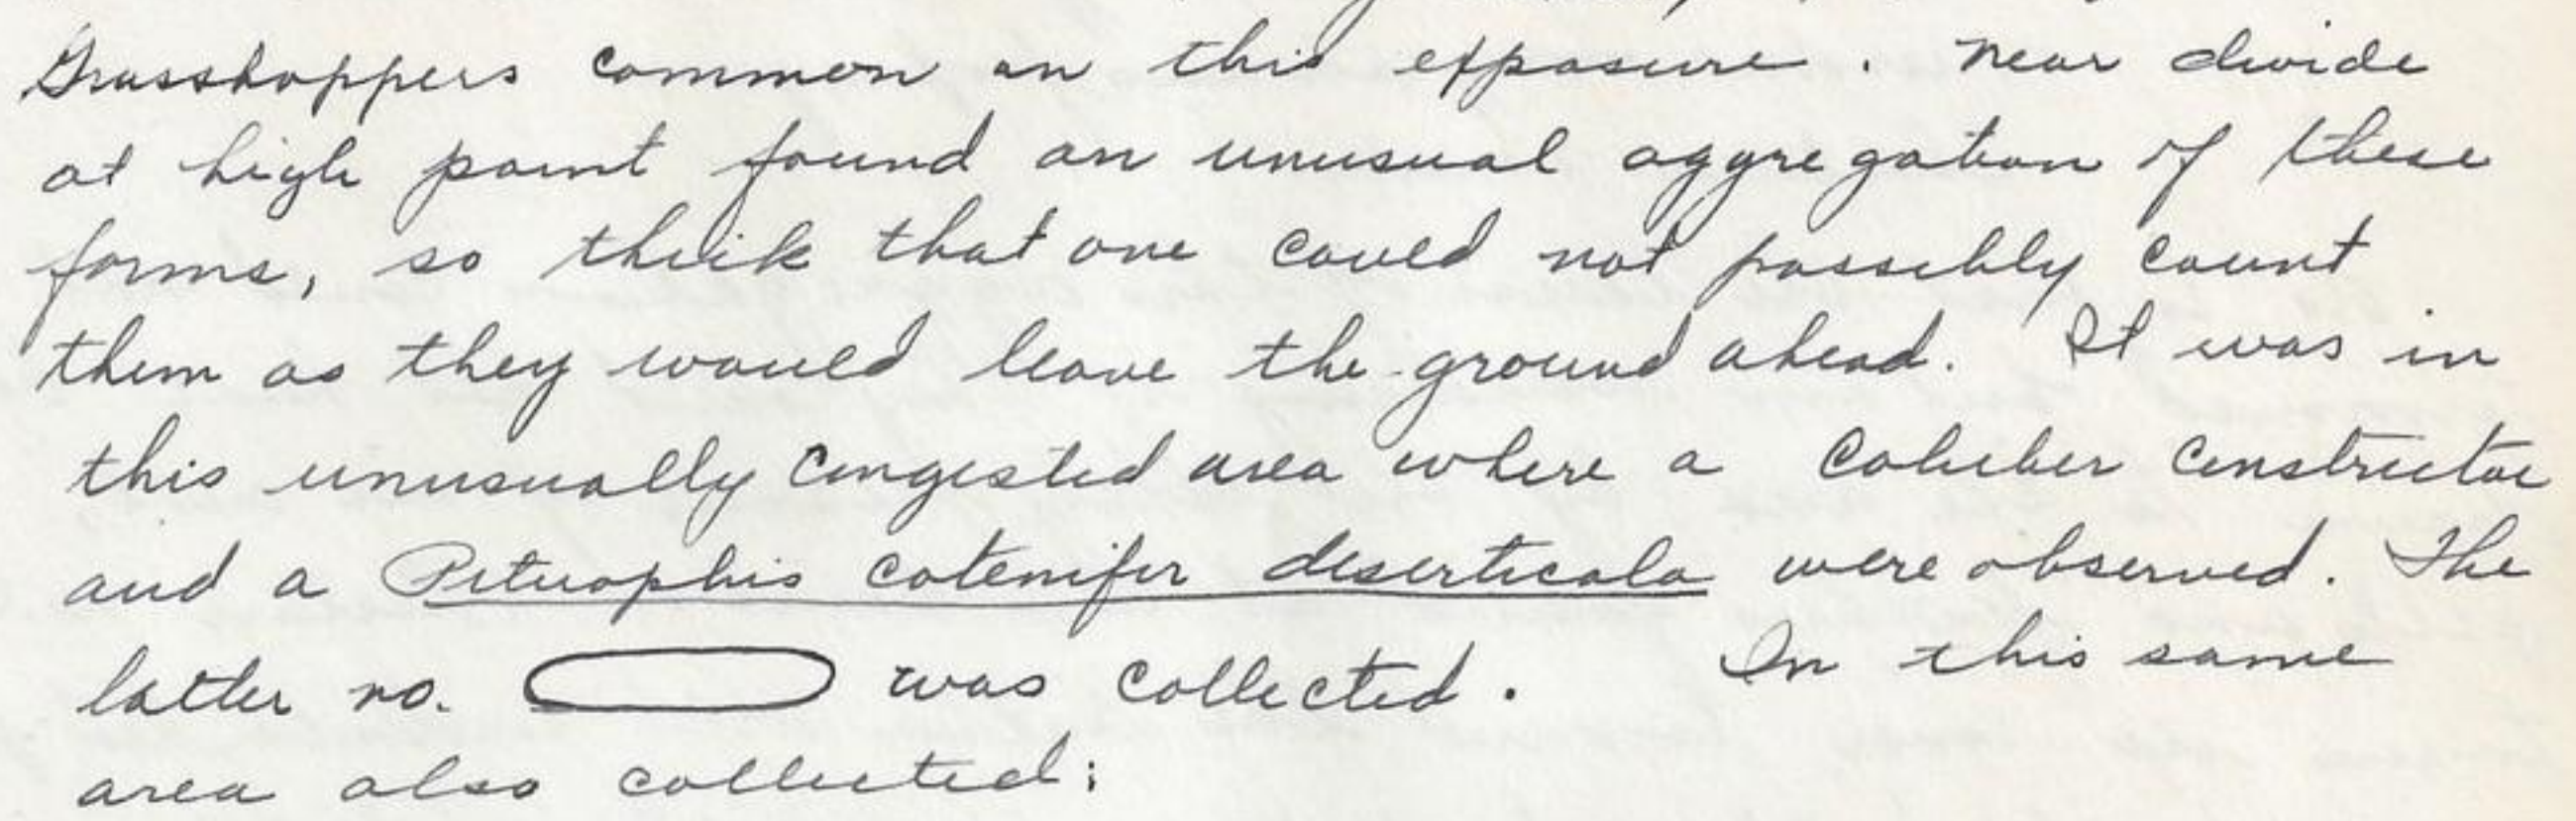 Grasshoppers common on this exposure. Near divide
at high point found an unusual aggregation of these
forms, so thick that one could not possibly count
them as they would leave the ground ahead. It was in
this unusually congested area where a Coluber constrictor
and a Pituophis catenifer deserticola were observed. The
latter no. was collected. In this same
area also collected: